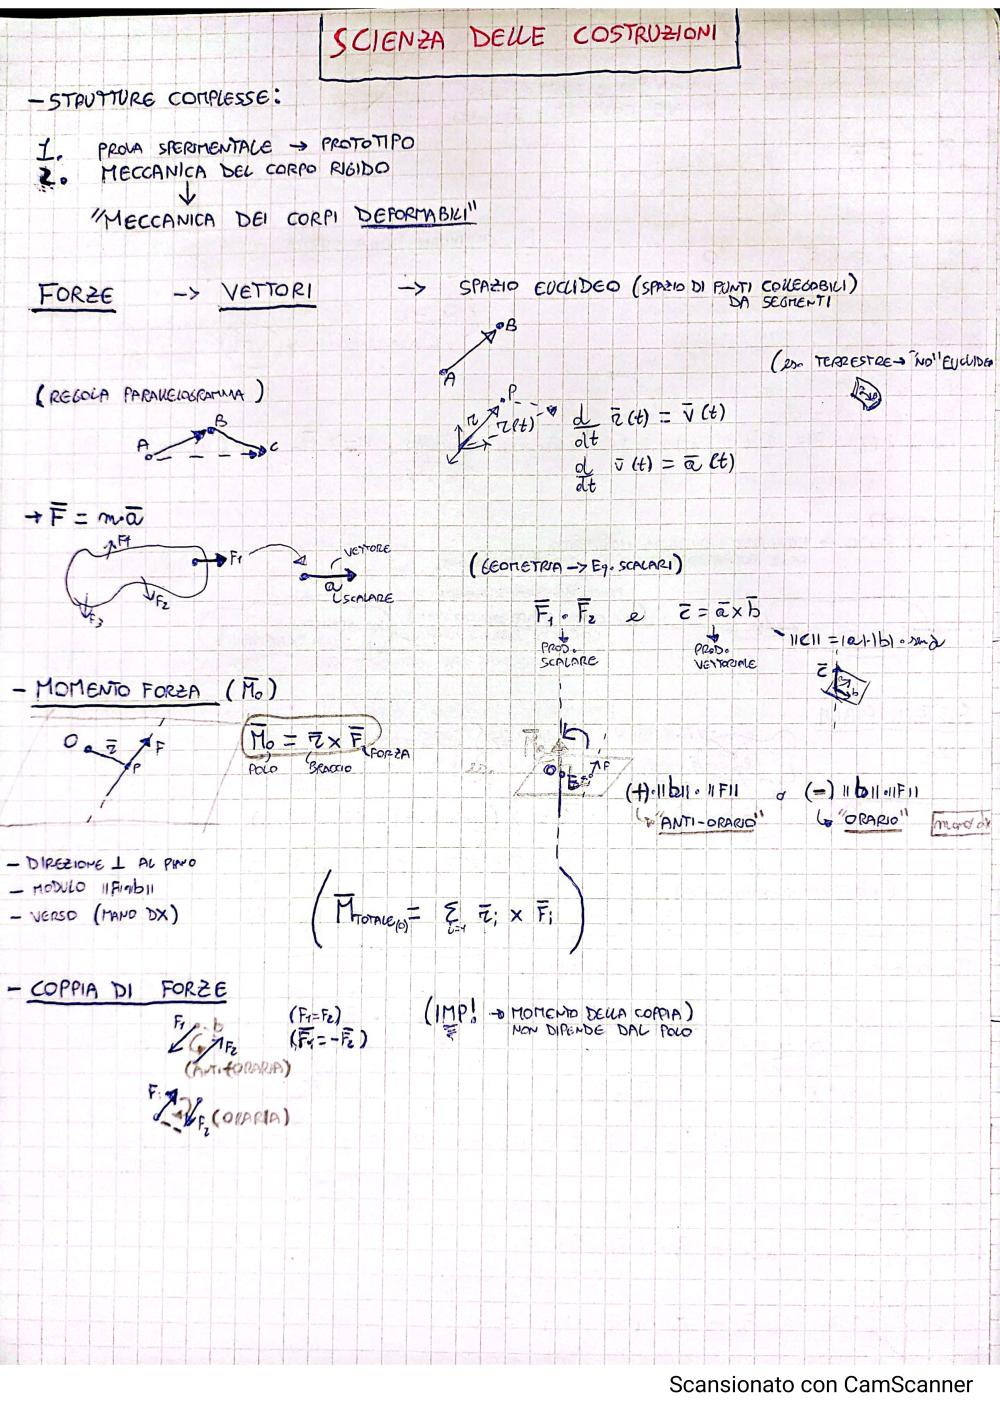 SCIENZA DELLE COSTRUZIONI
- STRUTTURE COMPLESSE:
1. PROVA SPERIMENTALE → PROTOTIPO
2. MECCANICA DEL CORPO RIGIDO
↓
"MECCANICA DEI CORPI DEFORMABILI"
FORZE -> VETTORI -> SPAZIO EUCLIDEO (SPAZIO DI PUNTI COLLEGABILI)
DA SEGMENTI
B
A
(es. TERRESTRE → "NO" EUCLIDEO
(REGOLA PARALLELOGRAMMA)
A B C
P
r(t)
d/dt r̄(t) = v̄(t)
d/dt v̄(t) = ā(t)
→ F̄ = m·ā
F4 F1 F2 F3
VETTORE
a
SCALARE
(GEOMETRIA → Eq. SCALARI)
F̄1 · F̄2 e c̄ = ā x b̄
PROD. SCALARE
PROD. VETTORIALE
||C|| = |a|·|b| · sen α
c̄
b
- MOMENTO FORZA (M̄o)
O r̄ F P
M̄o = r̄ x F̄
POLO BRACCIO FORZA
O b F
(+)·||b||·||F|| o (-) ||b||·||F||
"ANTI-ORARIO" "ORARIO"
mano dx
- DIREZIONE ⊥ AL PIANO
- MODULO ||F||·||b||
- VERSO (MANO DX)
(M̄TOTALE(o) = Σ i=1 r̄i x F̄i)
- COPPIA DI FORZE
F1 b F2
(ANTIORARIA)
(F1=F2)
(F̄1=-F̄2)
(IMP! → MOMENTO DELLA COPPIA)
NON DIPENDE DAL POLO
F1 F2 (ORARIA)
Scansionato con CamScanner